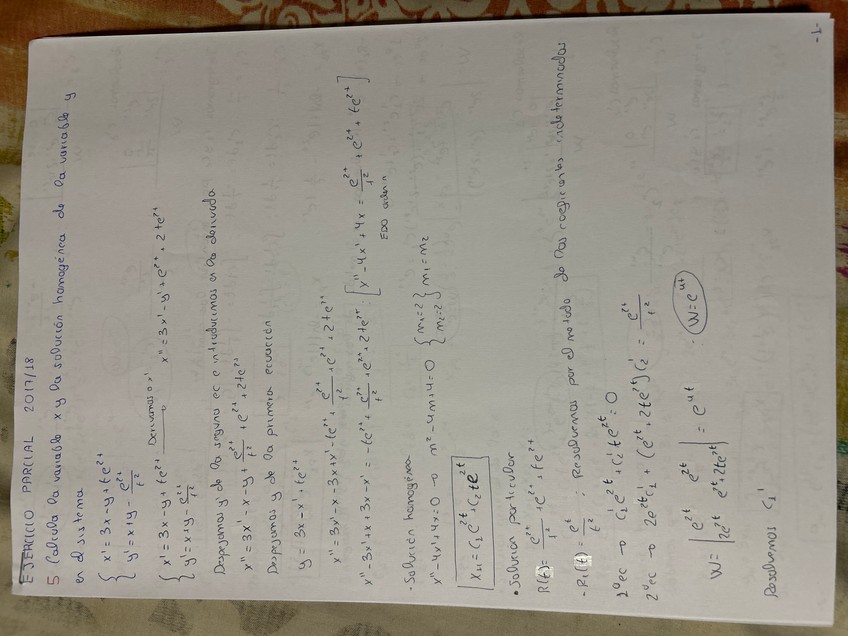 EJERCICIO PARCIAL 2017/18
5 Calcula la variable x y la solución homogénea de la variable y
en el sistema
{ x' = 3x - y + te^{2t}
{ y' = x + y - e^{2t}/t^2
{ x' = 3x - y + te^{2t} Derivamos x' → x'' = 3x' - y' + e^{2t} + 2te^{2t}
{ y' = x + y - e^{2t}/t^2
Despejamos y' de la segunda ec e introducimos en la derivada
x'' = 3x' - x - y + e^{2t}/t^2 + e^{2t} + 2te^{2t}
Despejamos y de la primera ecuación
y = 3x - x' + te^{2t}
x'' = 3x' - x - 3x + x' - te^{2t} + e^{2t}/t^2 + e^{2t} + 2te^{2t}
x'' - 3x' + x + 3x - x' = -te^{2t} + e^{2t}/t^2 + e^{2t} + 2te^{2t} · [x'' - 4x' + 4x = e^{2t}/t^2 + e^{2t} + te^{2t}]
EDO
- Solución homogénea
x'' - 4x' + 4x = 0 → m^2 - 4m + 4 = 0 { m1 = 2 m2 = 2 } m1 = m2
x_H = C1 e^{2t} + C2 te^{2t}
• Solución particular
R(t) = e^{2t}/t^2 + e^{2t} + te^{2t}
- R1(t) = e^t/t^2 ; Resolvemos por el metodo de los coeficientes indeterminados
1ª ec → C1' e^{2t} + C2' te^{2t} = 0
2ª ec → 2e^{2t} C1' + (e^{2t} + 2te^{2t}) C2' = e^{2t}/t^2
W = | e^{2t} e^{2t} ; 2e^{2t} e^{2t} + 2te^{2t} | = e^{4t} · W = e^{4t}
Resolvemos C1'
-1-